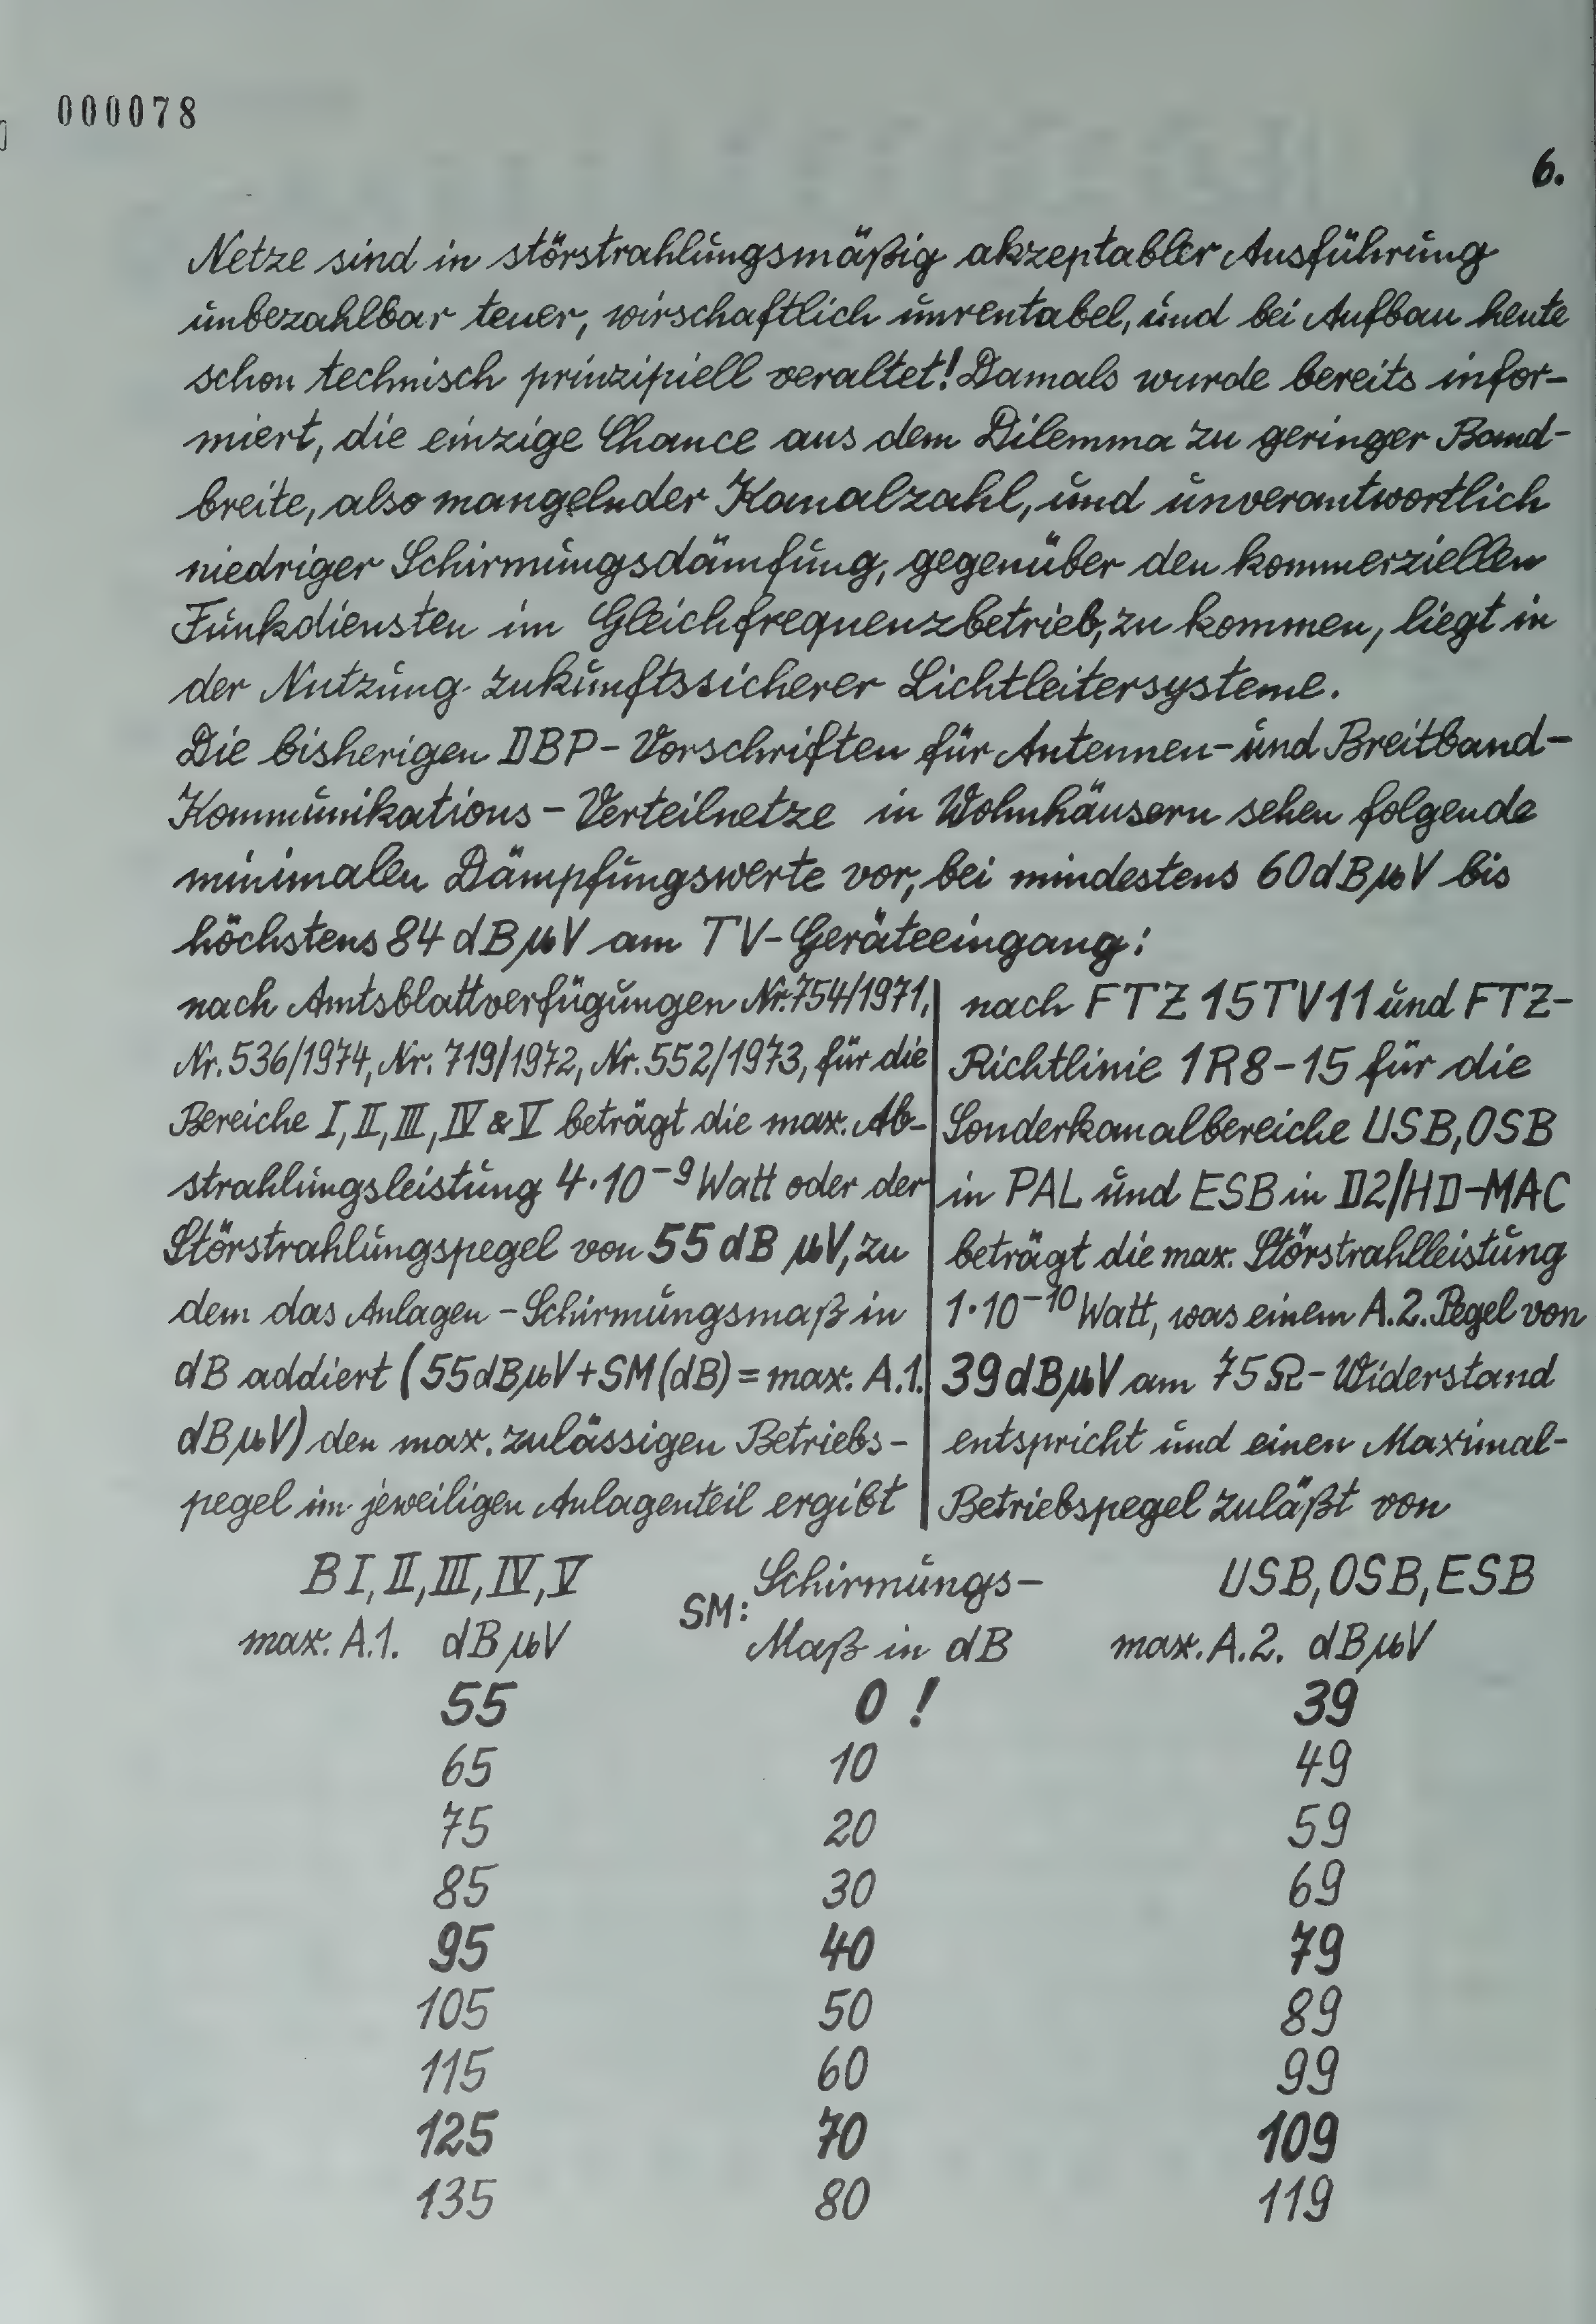 000078
6.
Netze sind in störstrahlungsmäßig akzeptabler Ausführung
unbezahlbar teuer, wirschaftlich unrentabel, und bei Aufbau heute
schon technisch prinzipiell veraltet! Damals wurde bereits infor-
miert, die einzige Chance aus dem Dilemma zu geringer Band-
breite, also mangelnder Kanalzahl, und unverantwortlich
niedriger Schirmungsdämfung, gegenüber den kommerziellen
Funkdiensten im Gleichfrequenzbetrieb, zu kommen, liegt in
der Nutzung zukunftssicherer Lichtleitersysteme.
Die bisherigen DBP-Vorschriften für Antennen- und Breitband-
Kommunikations-Verteilnetze in Wohnhäusern sehen folgende
minimalen Dämpfungswerte vor, bei mindestens 60dBµV bis
höchstens 84 dBµV am TV-Geräteeingang:
nach Amtsblattverfügungen Nr.754/1971,
Nr.536/1974, Nr. 719/1972, Nr.552/1973, für die
Bereiche I, II, III, IV & V beträgt die max. Ab-
strahlungsleistung 4·10⁻⁹ Watt oder der
Störstrahlungspegel von 55 dB µV, zu
dem das Anlagen-Schirmungsmaß in
dB addiert (55dBµV+SM(dB)=max. A.1.
dBµV) den max. zulässigen Betriebs-
pegel im jeweiligen Anlagenteil ergibt
nach FTZ 15TV11 und FTZ-
Richtlinie 1R8-15 für die
Sonderkanalbereiche USB, OSB
in PAL und ESB in D2/HD-MAC
beträgt die max. Störstrahlleistung
1·10⁻¹⁰ Watt, was einem A.2. Pegel von
39dBµV am 75Ω-Widerstand
entspricht und einen Maximal-
Betriebspegel zuläßt von
B I, II, III, IV, V SM: Schirmungs- USB, OSB, ESB
max. A.1. dBµV Maß in dB max. A.2. dBµV
55 0 ! 39
65 10 49
75 20 59
85 30 69
95 40 79
105 50 89
115 60 99
125 70 109
135 80 119